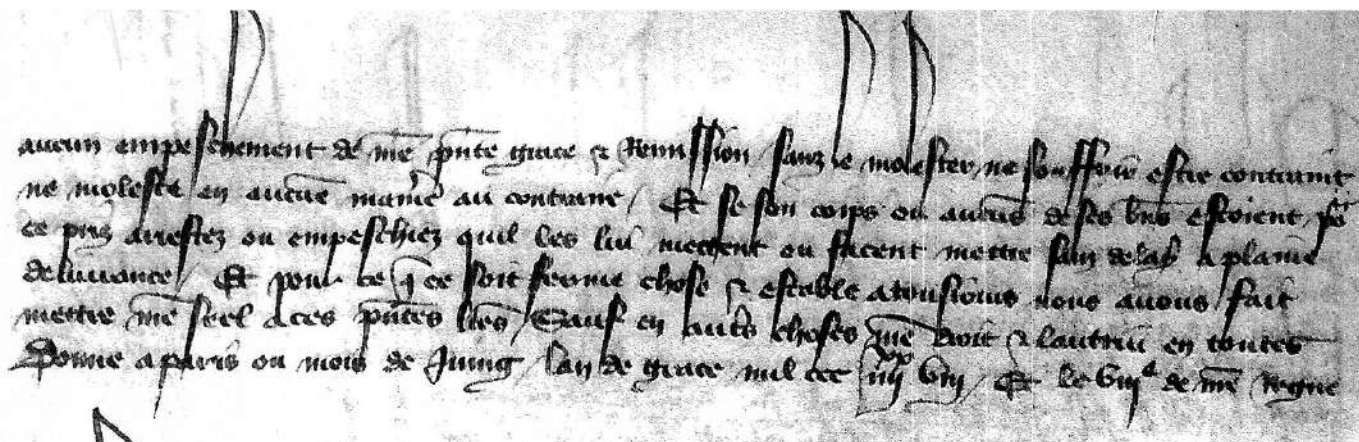 aucun empeschement de nre pnte grace & remission sanz le molester ne souffrir estre contraint
ne moleste en aucune maniere au contraire / Et se son corps ou aucuns de ses biens estoient po
ce pris arrestez ou empeschiez quil les lui mettent ou facent mettre sanz delay a plaine
delivrance / Et pour ce q ce soit ferme chose & estable a tousiours nous avons fait
mettre nre seel a ces pntes lres / Sauf en autres choses nre droit & lautrui en toutes
Donne a paris ou mois de Juing lan de grace mil ccc iiii xx viii / Et le viiie de nre regne